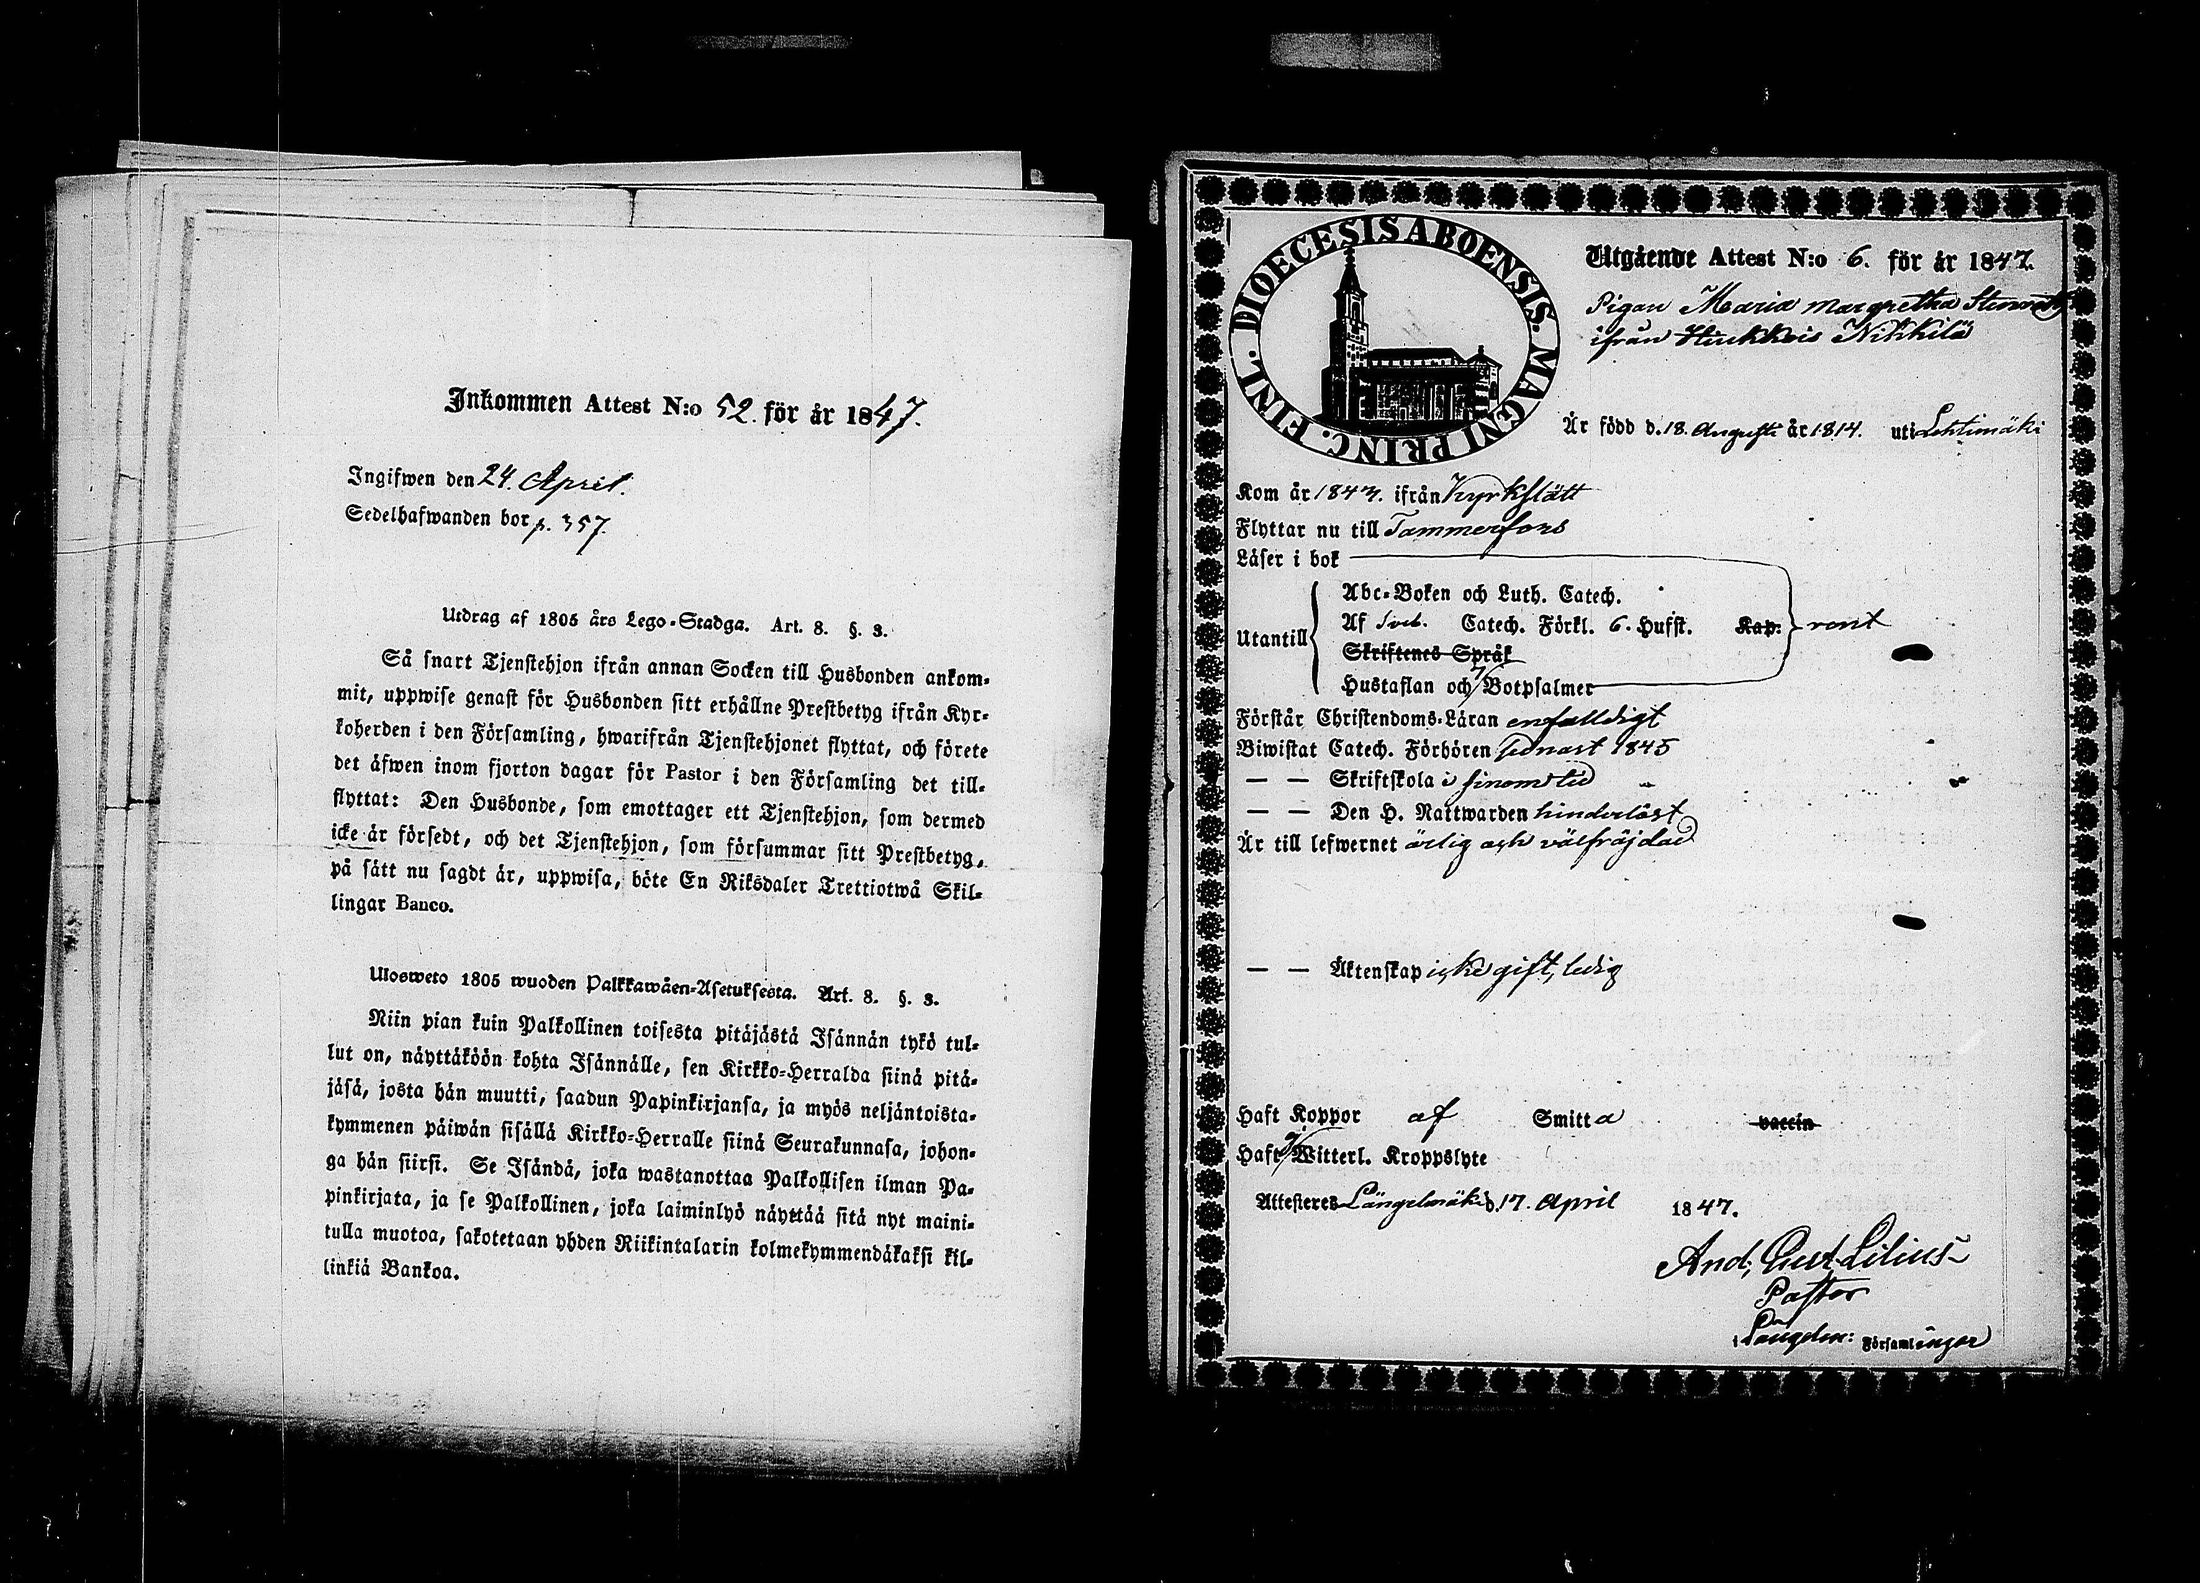 Inkommen Attest N:o 52. för år 1847.
Ingifwen den 24. April.
Sedelhafwanden bor p. 357.
Utdrag af 1805 års Lego-Stadga. Art. 8. §. 3.
Så snart Tjenstehjon ifrån annan Socken till Husbonden ankom-
mit, uppwise genast för Husbonden sitt erhållne Prestbetyg ifrån Kyr-
koherden i den Församling, hwarifrån Tjenstehjonet flyttat, och förete
det äfwen inom fjorton dagar för Pastor i den Församling det till-
flyttat: Den Husbonde, som emottager ett Tjenstehjon, som dermed
icke är försedt, och det Tjenstehjon, som försummar sitt Prestbetyg,
på sätt nu sagdt är, uppwisa, böte En Riksdaler Trettiotwå Skil-
lingar Banco.
Ulosweto 1805 wuoden Palkkawäen-Asetuksesta. Art. 8. §. 3.
Niin pian kuin Palkollinen toisesta pitäjästä Isännän tykö tul-
lut on, näyttäköön kohta Isännälle, sen Kirkko-Herralda siinä pitä-
jäsä, josta hän muutti, saadun Papinkirjansa, ja myös neljäntoista-
kymmenen päiwän sisällä Kirkko-Herralle siinä Seurakunnasa, johon-
ga hän siirsi. Se Isändä, joka wastanottaa Palkollisen ilman Pa-
pinkirjata, ja se Palkollinen, joka laiminlyö näyttää sitä nyt maini-
tulla muotoa, sakotetaan yhden Riikintalarin kolmekymmendäkaksi kil-
linkiä Bankoa.
DIOECESIS ABOENSIS. MAGNI PRINC. FINL.
Utgående Attest N:o 6. för år 1847.
Pigan Maria Margretha
ifrån Hiukkois Nikkilä
Är född d. 18. Augusti år 1814. uti Lehtimäki
Kom år 1843. ifrån Kyrkslätt
Flyttar nu till Tammerfors
Läser i bok
Abc-Boken och Luth. Catech.
Utantill Af Sveb. Catech. Förkl. 6. Husst. Kap. rent
Skriftenes Språk
Hustaflan och 7 Botpsalmer
Förstår Christendoms-Läran enfalldigt
Biwistat Catech. Förhören senast 1845
— — Skriftskola i sinom tid
— — Den H. Nattwarden hinderlöst
Är till lefwernet ärlig och välfräjdad
— — Äktenskap icke gift, ledig
Haft Koppor af Smitta vaccin
Haft Witterl. Kroppslyte
Attesteres Längelmäki d. 17. April 1847.
And, Gust Lilius
Pastor
i Längelm: Församlingar